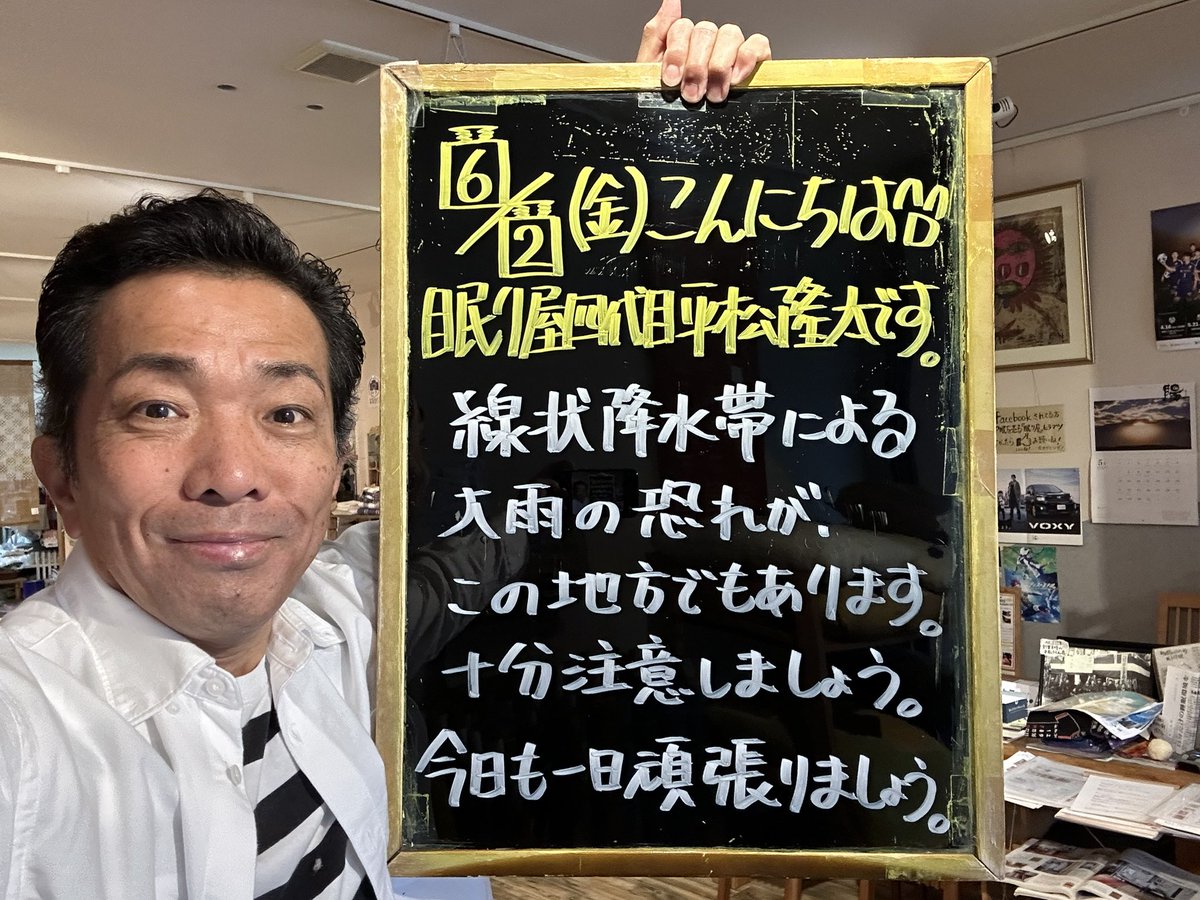 6/2(金)こんにちは
眠り屋四代目平松隆太です。
線状降水帯による
大雨の恐れが、
この地方でもあります。
十分注意しましょう。
今日も一日頑張りましょう。
Facebook
VOXY